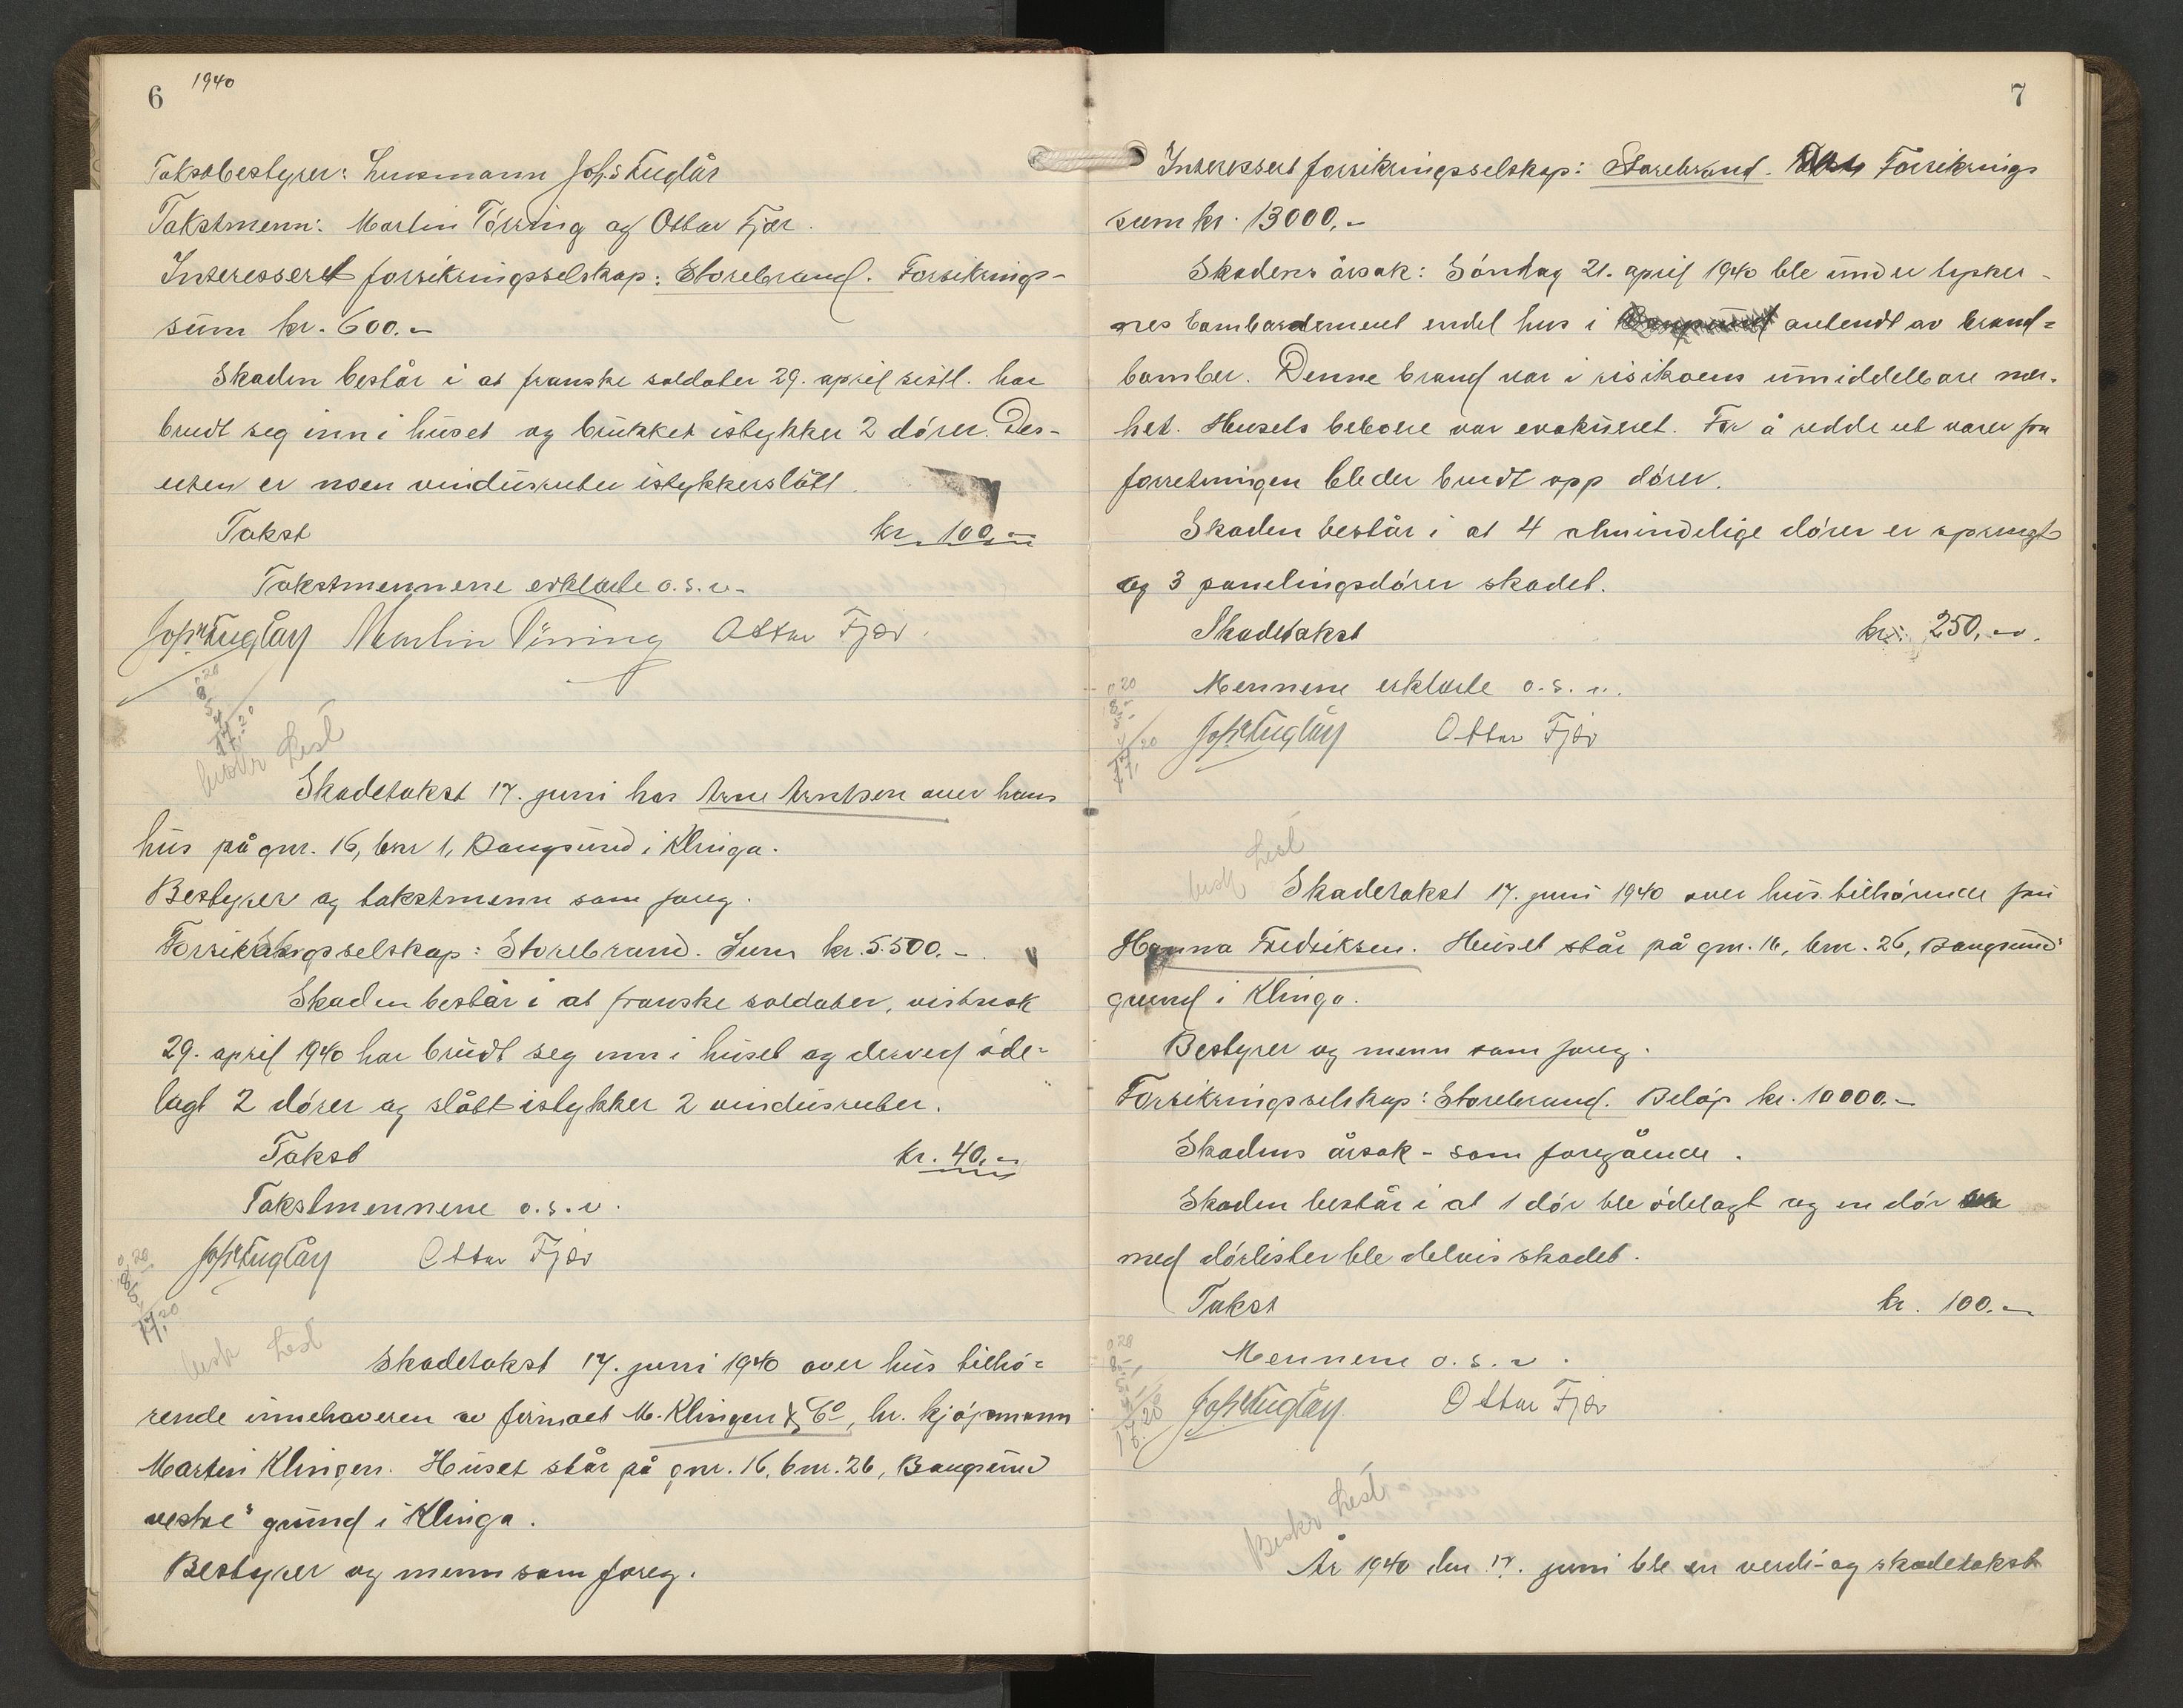 6 1940
Takstbestyrer: Lensmann Joh.s Fuglår
Takstmenn: Martin Tørring og Ottar Fjær.
Interessert forsikringsselskap: Storebrand. Forsikrings-
sum kr. 600.-
Skaden består i at franske soldater 29. april sistl. har
brudt seg inn i huset og brukket istykker 2 dører. Des-
uten er noen vindusruter istykkerslått.
Takst kr. 100,-
Takstmennene erklærte o.s.v.
Martin Tørring Ottar Fjær.
0.20
8
5
4
17.20
beskr Lest
Skadetakst 17. juni hos Arne Arntsen over hans
hus på gnr. 16, bnr 1, Bangsund i Klinga.
Bestyrer og takstmenn som foreg.
Forsikringsselskap: Storebrand. Sum kr. 5.500.-
Skaden består i at franske soldater, vistnok
29. april 1940 har brudt seg inn i huset og derved øde-
lagt 2 dører og slått istykker 2 vindusruter.
Takst kr. 40,-
Takstmennene o.s.v.
Ottar Fjær
0,20
8
5
4
17,20
besk Lest
Skadetakst 17. juni 1940 over hus tilhø-
rende innehaveren av firmaet M. Klingen & Co, hr. kjøpmann
Martin Klingen. Huset står på gnr. 16, bnr. 26, Bangsund
vestre" grund i Klinga.
Bestyrer og menn som foreg.
7
Interessert forsikringsselskap: Storebrand. Forsikrings
sum kr. 13000,-
Skadens årsak: Søndag 21. april 1940 ble under tysker-
nes bombardement endel hus i Bangsund antendt av brand-
bomber. Denne brand var i risikoens umiddelbare nær-
het. Husets beboere var evakueret. For å redde ut varer fra
forretningen ble der brudt opp dører.
Skaden består i at 4 almindelige dører er sprengt
og 3 panelingsdører skadet.
Skadetakst kr. 250,-.
Mennene erklærte o.s.v.
Ottar Fjær
0,20
8
5
4
17,20
besk Lest
Skadetakst 17. juni 1940 over hus tilhørende fru
Hanna Fredriksen. Huset står på gnr. 16, bnr. 26, Bangsund
grund i Klinga.
Bestyrer og menn som foreg.
Forsikringsselskap: Storebrand. Beløp kr. 10000.-
Skadens årsak - som foregående.
Skaden består i at 1 dør ble ødelagt og en dør
med dørlister ble delvis skadet.
Takst kr. 100.-
Mennene o.s.v.
Ottar Fjær
0,20
8
5
4
17.20
Beskr Lest
År 1940 den 17. juni ble en verdi- og skadetakst